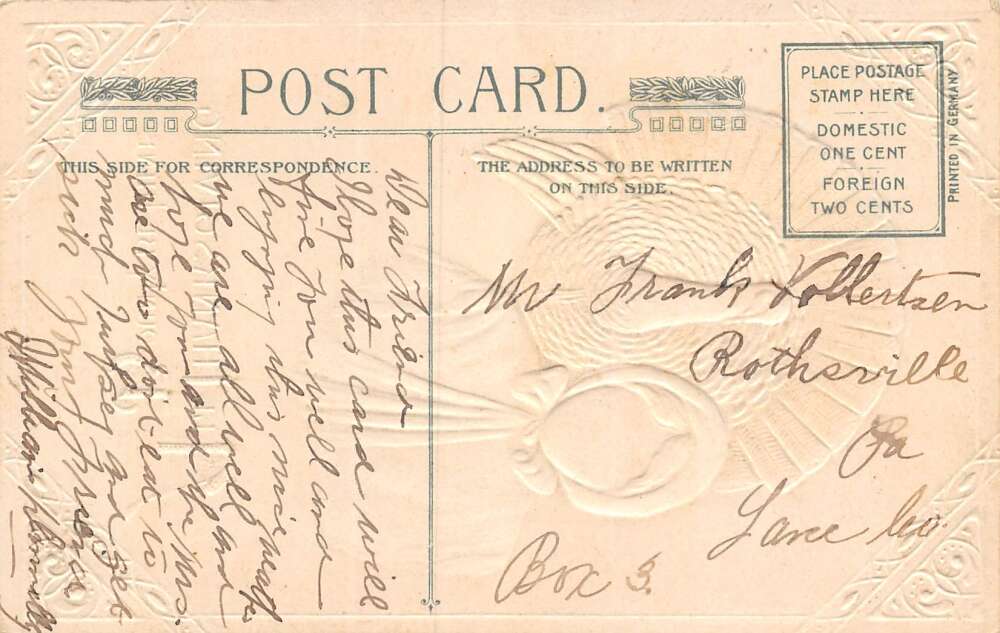 POST CARD.
PLACE POSTAGE
STAMP HERE
DOMESTIC
ONE CENT
FOREIGN
TWO CENTS
PRINTED IN GERMANY
THIS SIDE FOR CORRESPONDENCE.
THE ADDRESS TO BE WRITTEN
ON THIS SIDE.
Dear Friend
I hope this card will
find you well and
enjoying this nice weather
we are all well and
hope you and the Mrs.
are two don't eat to
much turkey and get
sick your Friend
William
Mr Frank Vollertsen
Rothsville
Pa
Lanc Co
Box 3.